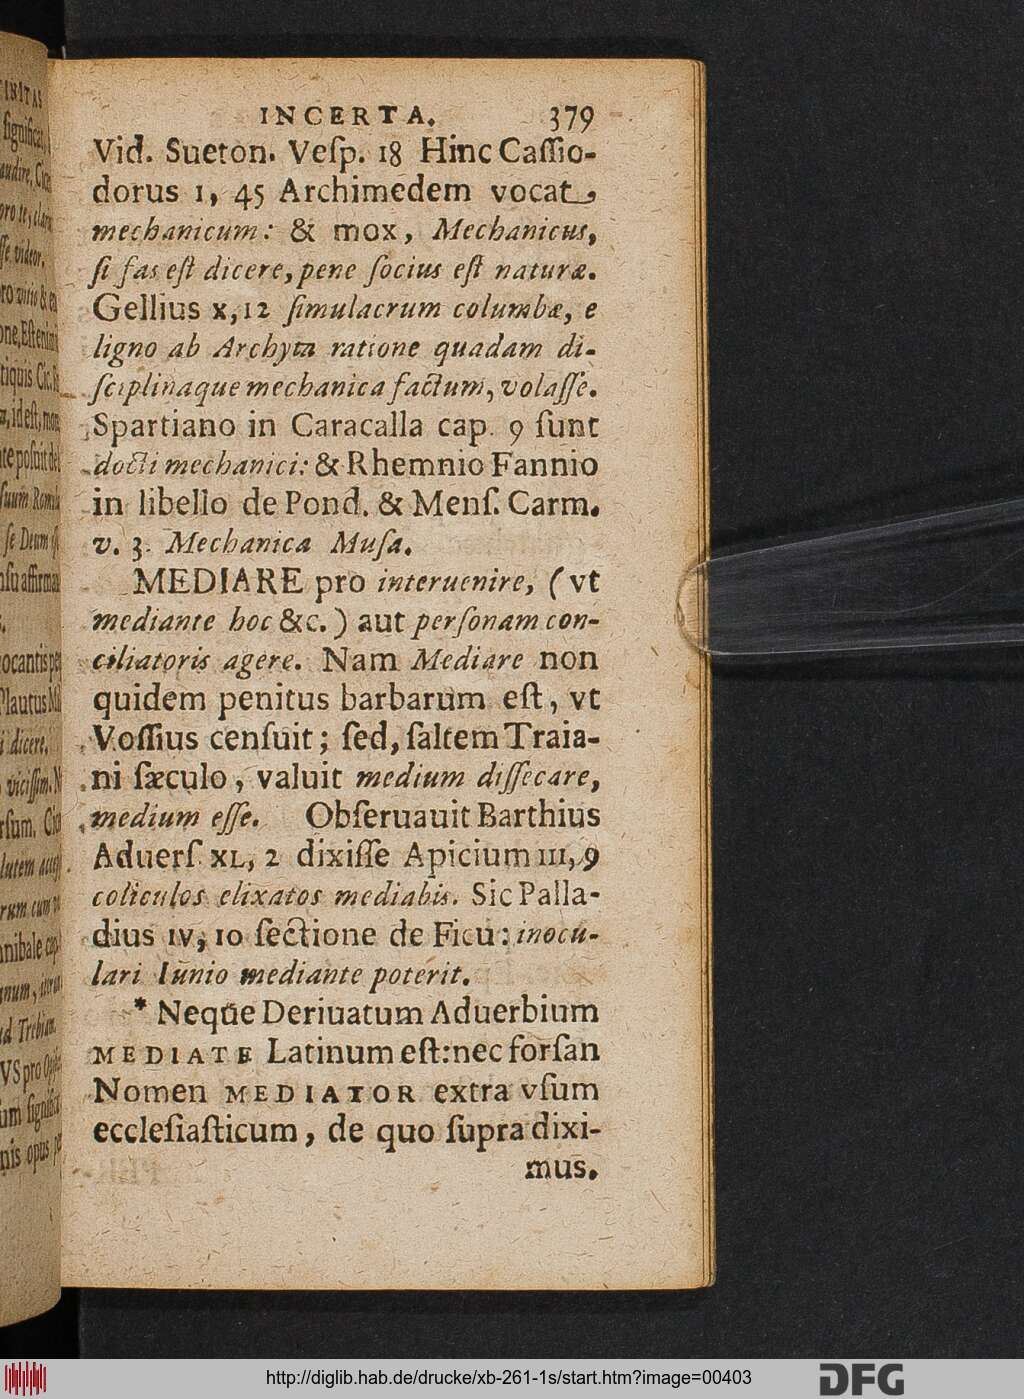 INCERTA. 379
Vid. Sueton. Veſp. 18 Hinc Caſſio-
dorus 1, 45 Archimedem vocat,
mechanicum: & mox, Mechanicus,
ſi fas eſt dicere, pene ſocius eſt naturæ.
Gellius x, 12 ſimulacrum columbæ, e
ligno ab Archyta ratione quadam di-
ſciplinaque mechanica factum, volaſſe.
Spartiano in Caracalla cap. 9 ſunt
docti mechanici: & Rhemnio Fannio
in libello de Pond. & Menſ. Carm.
v. 3. Mechanica Muſa.
MEDIARE pro interuenire, (vt
mediante hoc &c.) aut perſonam con-
ciliatoris agere. Nam Mediare non
quidem penitus barbarum eſt, vt
Voſſius cenſuit; ſed, ſaltem Traia-
ni ſæculo, valuit medium diſſecare,
medium eſſe. Obſeruauit Barthius
Aduerſ. XL, 2 dixiſſe Apicium III, 9
coliculos elixatos mediabis. Sic Palla-
dius IV, 10 ſectione de Ficu: inocu-
lari Iunio mediante poterit.
* Neque Deriuatum Aduerbium
MEDIATE Latinum eſt: nec forſan
Nomen MEDIATOR extra vſum
eccleſiaſticum, de quo ſupra dixi-
mus.
http://diglib.hab.de/drucke/xb-261-1s/start.htm?image=00403
DFG